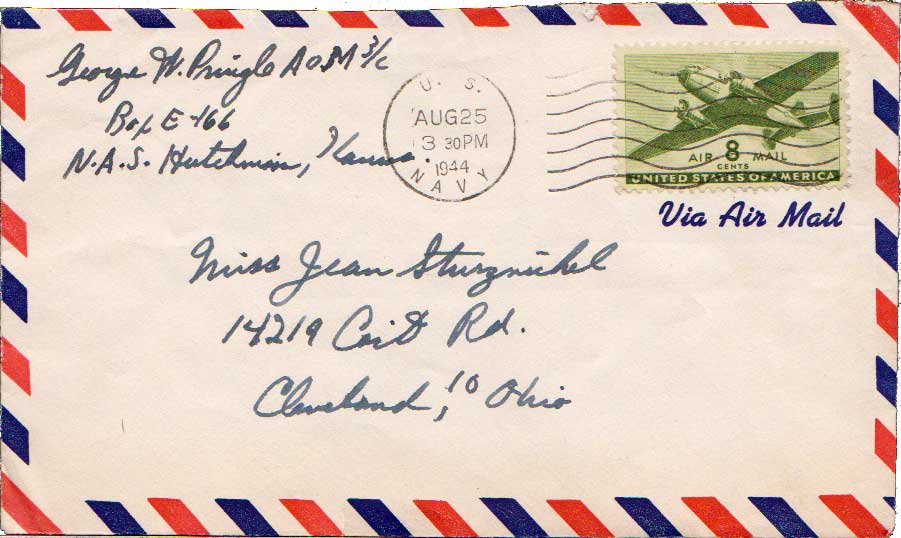 George W. Pringle A.O.M 3/c
Box E-166
N.A.S. Hutchinson, Kansas.
U. S.
AUG 25
3 30 PM
1944
NAVY
AIR 8 MAIL
CENTS
UNITED STATES OF AMERICA
Via Air Mail
Miss Jean Sturznickel
14219 Coit Rd.
Cleveland, 10 Ohio